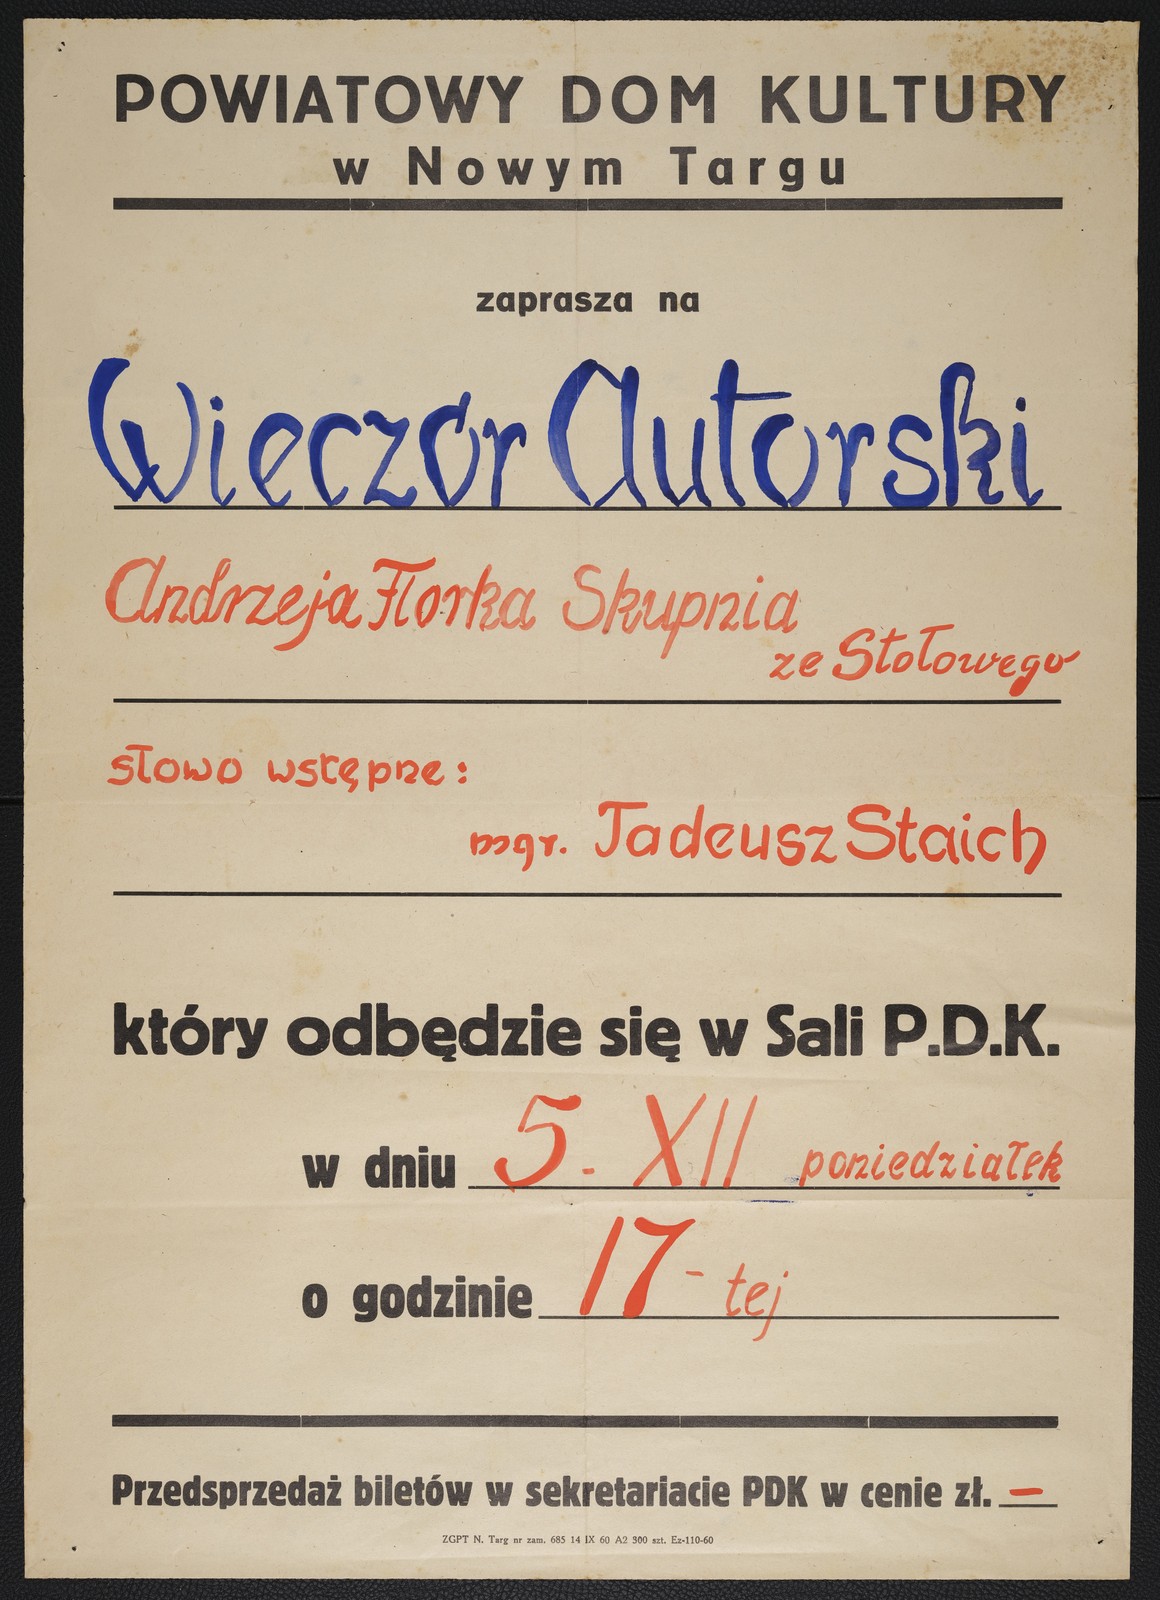 POWIATOWY DOM KULTURY
w Nowym Targu
zaprasza na
Wieczór Autorski
Andrzeja Florka Skupnia
ze Stołowego
słowo wstępne:
mgr. Tadeusz Staich
który odbędzie się w Sali P.D.K.
w dniu 5. XII poniedziałek
o godzinie 17-tej
Przedsprzedaż biletów w sekretariacie PDK w cenie zł. —
ZGPT N. Targ nr zam. 685 14 IX 60 A2 300 szt. Ez-110-60